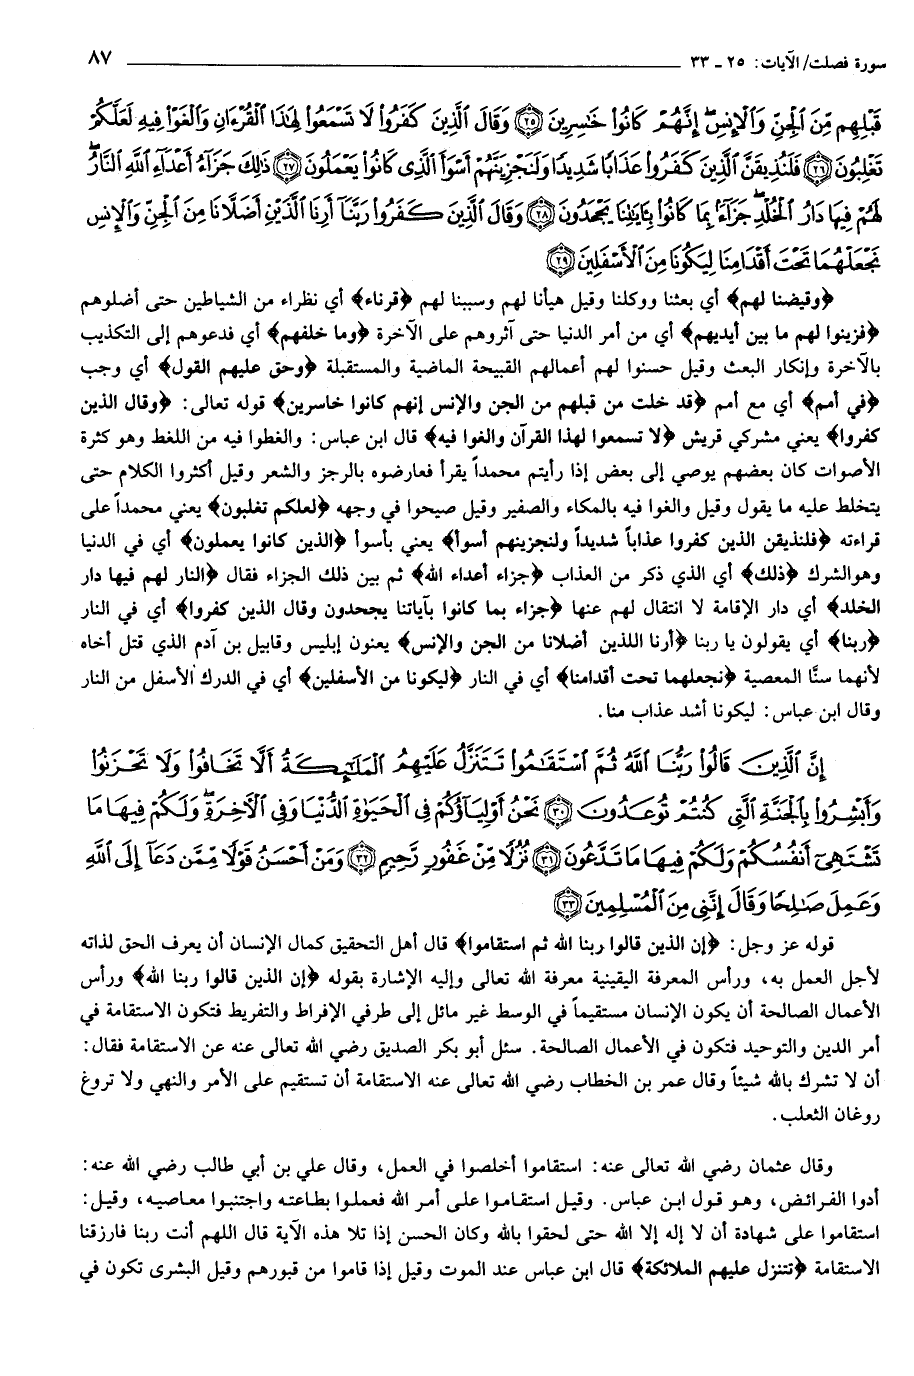 سورة فصلت/ الآيات: ٢٥ ـ ٣٣ ٨٧
قَبْلِهِم مِّنَ ٱلْجِنِّ وَٱلْإِنسِ ۖ إِنَّهُمْ كَانُوا۟ خَٰسِرِينَ ﴿٢٥﴾ وَقَالَ ٱلَّذِينَ كَفَرُوا۟ لَا تَسْمَعُوا۟ لِهَٰذَا ٱلْقُرْءَانِ وَٱلْغَوْا۟ فِيهِ لَعَلَّكُمْ
تَغْلِبُونَ ﴿٢٦﴾ فَلَنُذِيقَنَّ ٱلَّذِينَ كَفَرُوا۟ عَذَابًا شَدِيدًا وَلَنَجْزِيَنَّهُمْ أَسْوَأَ ٱلَّذِى كَانُوا۟ يَعْمَلُونَ ﴿٢٧﴾ ذَٰلِكَ جَزَآءُ أَعْدَآءِ ٱللَّهِ ٱلنَّارُ ۖ
لَهُمْ فِيهَا دَارُ ٱلْخُلْدِ ۖ جَزَآءًۢ بِمَا كَانُوا۟ بِـَٔايَٰتِنَا يَجْحَدُونَ ﴿٢٨﴾ وَقَالَ ٱلَّذِينَ كَفَرُوا۟ رَبَّنَآ أَرِنَا ٱلَّذَيْنِ أَضَلَّانَا مِنَ ٱلْجِنِّ وَٱلْإِنسِ
نَجْعَلْهُمَا تَحْتَ أَقْدَامِنَا لِيَكُونَا مِنَ ٱلْأَسْفَلِينَ ﴿٢٩﴾
﴿وقيضنا لهم﴾ أي بعثنا ووكلنا وقيل هيأنا لهم وسببنا لهم ﴿قرناء﴾ أي نظراء من الشياطين حتى أضلوهم
﴿فزينوا لهم ما بين أيديهم﴾ أي من أمر الدنيا حتى آثروهم على الآخرة ﴿وما خلفهم﴾ أي فدعوهم إلى التكذيب
بالآخرة وإنكار البعث وقيل حسنوا لهم أعمالهم القبيحة الماضية والمستقبلة ﴿وحق عليهم القول﴾ أي وجب
﴿في أمم﴾ أي مع أمم ﴿قد خلت من قبلهم من الجن والإنس إنهم كانوا خاسرين﴾ قوله تعالى: ﴿وقال الذين
كفروا﴾ يعني مشركي قريش ﴿لا تسمعوا لهذا القرآن والغوا فيه﴾ قال ابن عباس: والغطوا فيه من اللغط وهو كثرة
الأصوات كان بعضهم يوصي إلى بعض إذا رأيتم محمداً يقرأ فعارضوه بالرجز والشعر وقيل أكثروا الكلام حتى
يتخلط عليه ما يقول وقيل والغوا فيه بالمكاء والصفير وقيل صيحوا في وجهه ﴿لعلكم تغلبون﴾ يعني محمداً على
قراءته ﴿فلنذيقن الذين كفروا عذاباً شديداً ولنجزينهم أسوأ﴾ يعني بأسوأ ﴿الذين كانوا يعملون﴾ أي في الدنيا
وهوالشرك ﴿ذلك﴾ أي الذي ذكر من العذاب ﴿جزاء أعداء الله﴾ ثم بين ذلك الجزاء فقال ﴿النار لهم فيها دار
الخلد﴾ أي دار الإقامة لا انتقال لهم عنها ﴿جزاء بما كانوا بآياتنا يجحدون وقال الذين كفروا﴾ أي في النار
﴿ربنا﴾ أي يقولون يا ربنا ﴿أرنا اللذين أضلانا من الجن والإنس﴾ يعنون إبليس وقابيل بن آدم الذي قتل أخاه
لأنهما سنَّا المعصية ﴿نجعلهما تحت أقدامنا﴾ أي في النار ﴿ليكونا من الأسفلين﴾ أي في الدرك الأسفل من النار
وقال ابن عباس: ليكونا أشد عذاب منا.
إِنَّ ٱلَّذِينَ قَالُوا۟ رَبُّنَا ٱللَّهُ ثُمَّ ٱسْتَقَٰمُوا۟ تَتَنَزَّلُ عَلَيْهِمُ ٱلْمَلَٰٓئِكَةُ أَلَّا تَخَافُوا۟ وَلَا تَحْزَنُوا۟
وَأَبْشِرُوا۟ بِٱلْجَنَّةِ ٱلَّتِى كُنتُمْ تُوعَدُونَ ﴿٣٠﴾ نَحْنُ أَوْلِيَآؤُكُمْ فِى ٱلْحَيَوٰةِ ٱلدُّنْيَا وَفِى ٱلْآخِرَةِ ۖ وَلَكُمْ فِيهَا مَا
تَشْتَهِىٓ أَنفُسُكُمْ وَلَكُمْ فِيهَا مَا تَدَّعُونَ ﴿٣١﴾ نُزُلًا مِّنْ غَفُورٍ رَّحِيمٍ ﴿٣٢﴾ وَمَنْ أَحْسَنُ قَوْلًا مِّمَّن دَعَآ إِلَى ٱللَّهِ
وَعَمِلَ صَٰلِحًا وَقَالَ إِنَّنِى مِنَ ٱلْمُسْلِمِينَ ﴿٣٣﴾
قوله عز وجل: ﴿إن الذين قالوا ربنا الله ثم استقاموا﴾ قال أهل التحقيق كمال الإنسان أن يعرف الحق لذاته
لأجل العمل به، ورأس المعرفة اليقينية معرفة الله تعالى وإليه الإشارة بقوله ﴿إن الذين قالوا ربنا الله﴾ ورأس
الأعمال الصالحة أن يكون الإنسان مستقيماً في الوسط غير مائل إلى طرفي الإفراط والتفريط فتكون الاستقامة في
أمر الدين والتوحيد فتكون في الأعمال الصالحة. سئل أبو بكر الصديق رضي الله تعالى عنه عن الاستقامة فقال:
أن لا تشرك بالله شيئاً وقال عمر بن الخطاب رضي الله تعالى عنه الاستقامة أن تستقيم على الأمر والنهي ولا تروغ
روغان الثعلب.
وقال عثمان رضي الله تعالى عنه: استقاموا أخلصوا في العمل، وقال علي بن أبي طالب رضي الله عنه:
أدوا الفرائض، وهو قول ابن عباس. وقيل استقاموا على أمر الله فعملوا بطاعته واجتنبوا معاصيه، وقيل:
استقاموا على شهادة أن لا إله إلا الله حتى لحقوا بالله وكان الحسن إذا تلا هذه الآية قال اللهم أنت ربنا فارزقنا
الاستقامة ﴿تتنزل عليهم الملائكة﴾ قال ابن عباس عند الموت وقيل إذا قاموا من قبورهم وقيل البشرى تكون في